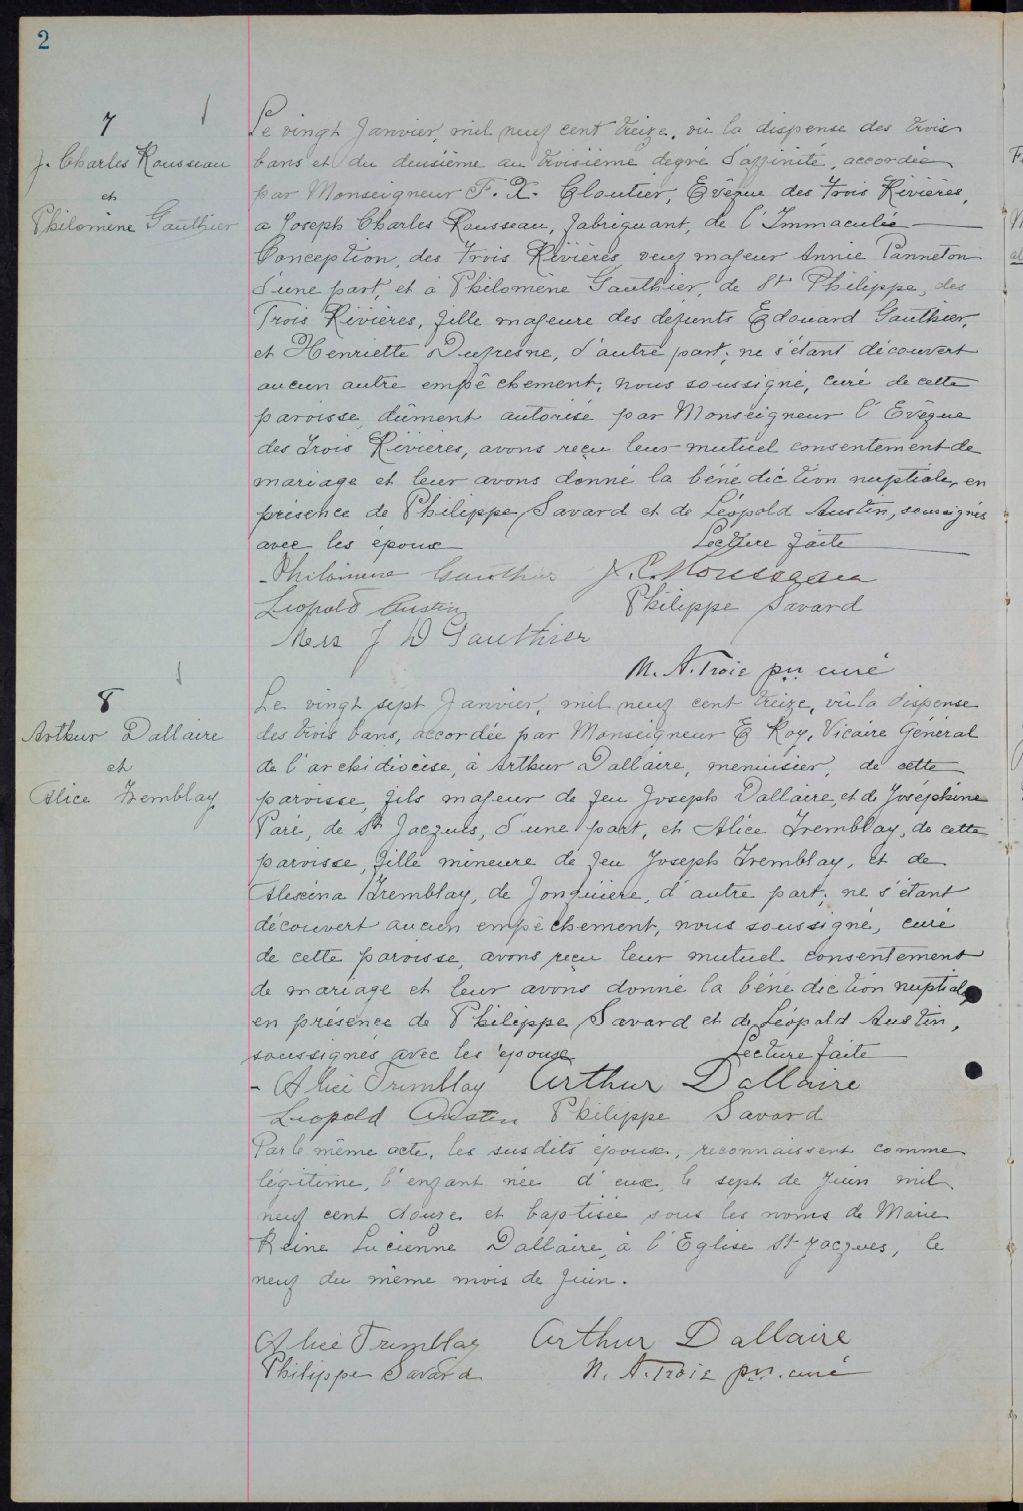 2
7
J. Charles Rousseau
et
Philomène Gauthier
Le vingt Janvier, mil neuf cent treize, vù la dispense des trois
bans et du deusième au troisième degré d'affinité, accordée
par Monseigneur F. X. Cloutier, Evêque des Trois Rivières,
a Joseph Charles Rousseau, fabriquant, de l'Immaculée
Conception, des Trois Rivières, veuf majeur Annie Panneton
d'une part, et à Philomène Gauthier, de St Philippe, des
Trois Rivières, fille majeure des défunts Edouard Gauthier,
et Henriette Dufresne, d'autre part; ne s'étant découvert
aucun autre empêchement, nous soussigné, curé de cette
paroisse, dûment autorisé par Monseigneur l'Evêque
des Trois Rivières, avons reçu leur mutuel consentement de
mariage et leur avons donné la bénédiction nuptiale, en
présence de Philippe Savard et de Léopold Austin, soussignés
avec les époux Lecture faite
Philomène Gauthier J. C. Rousseau
Leopold Austin Philippe Savard
J D Gauthier
curé
8
Arthur Dallaire
et
Alice Tremblay
Le vingt sept Janvier, mil neuf cent treize, vù la dispense
des trois bans, accordée par Monseigneur E Roy, Vicaire Général
de l'archidiocèse, à Arthur Dallaire, menuisier, de cette
paroisse, fils majeur de feu Joseph Dallaire, et de Joséphine
Paré, de St Jacques, d'une part, et Alice Tremblay, de cette
paroisse, fille mineure de feu Joseph Tremblay, et de
Tremblay, de Jonquière, d'autre part; ne s'étant
découvert aucun empêchement, nous soussigné, curé
de cette paroisse, avons reçu leur mutuel consentement
de mariage et leur avons donné la bénédiction nuptiale
en présence de Philippe Savard et de Léopold Austin,
soussignés avec les époux Lecture faite
Alice Tremblay Arthur Dallaire
Leopold Austin Philippe Savard
Par le même acte, les susdits époux, reconnaissent comme
légitime, l'enfant née d'eux, le sept de Juin mil
neuf cent douze et baptisée sous les noms de Marie
Reine Lucienne Dallaire, à l'Eglise St-Jacques, le
neuf du même mois de Juin.
Alice Tremblay Arthur Dallaire
Philippe Savard curé